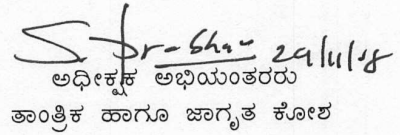 29/11/18
ಅಧೀಕ್ಷಕ ಅಭಿಯಂತರರು
ತಾಂತ್ರಿಕ ಹಾಗೂ ಜಾಗೃತ ಕೋಶ